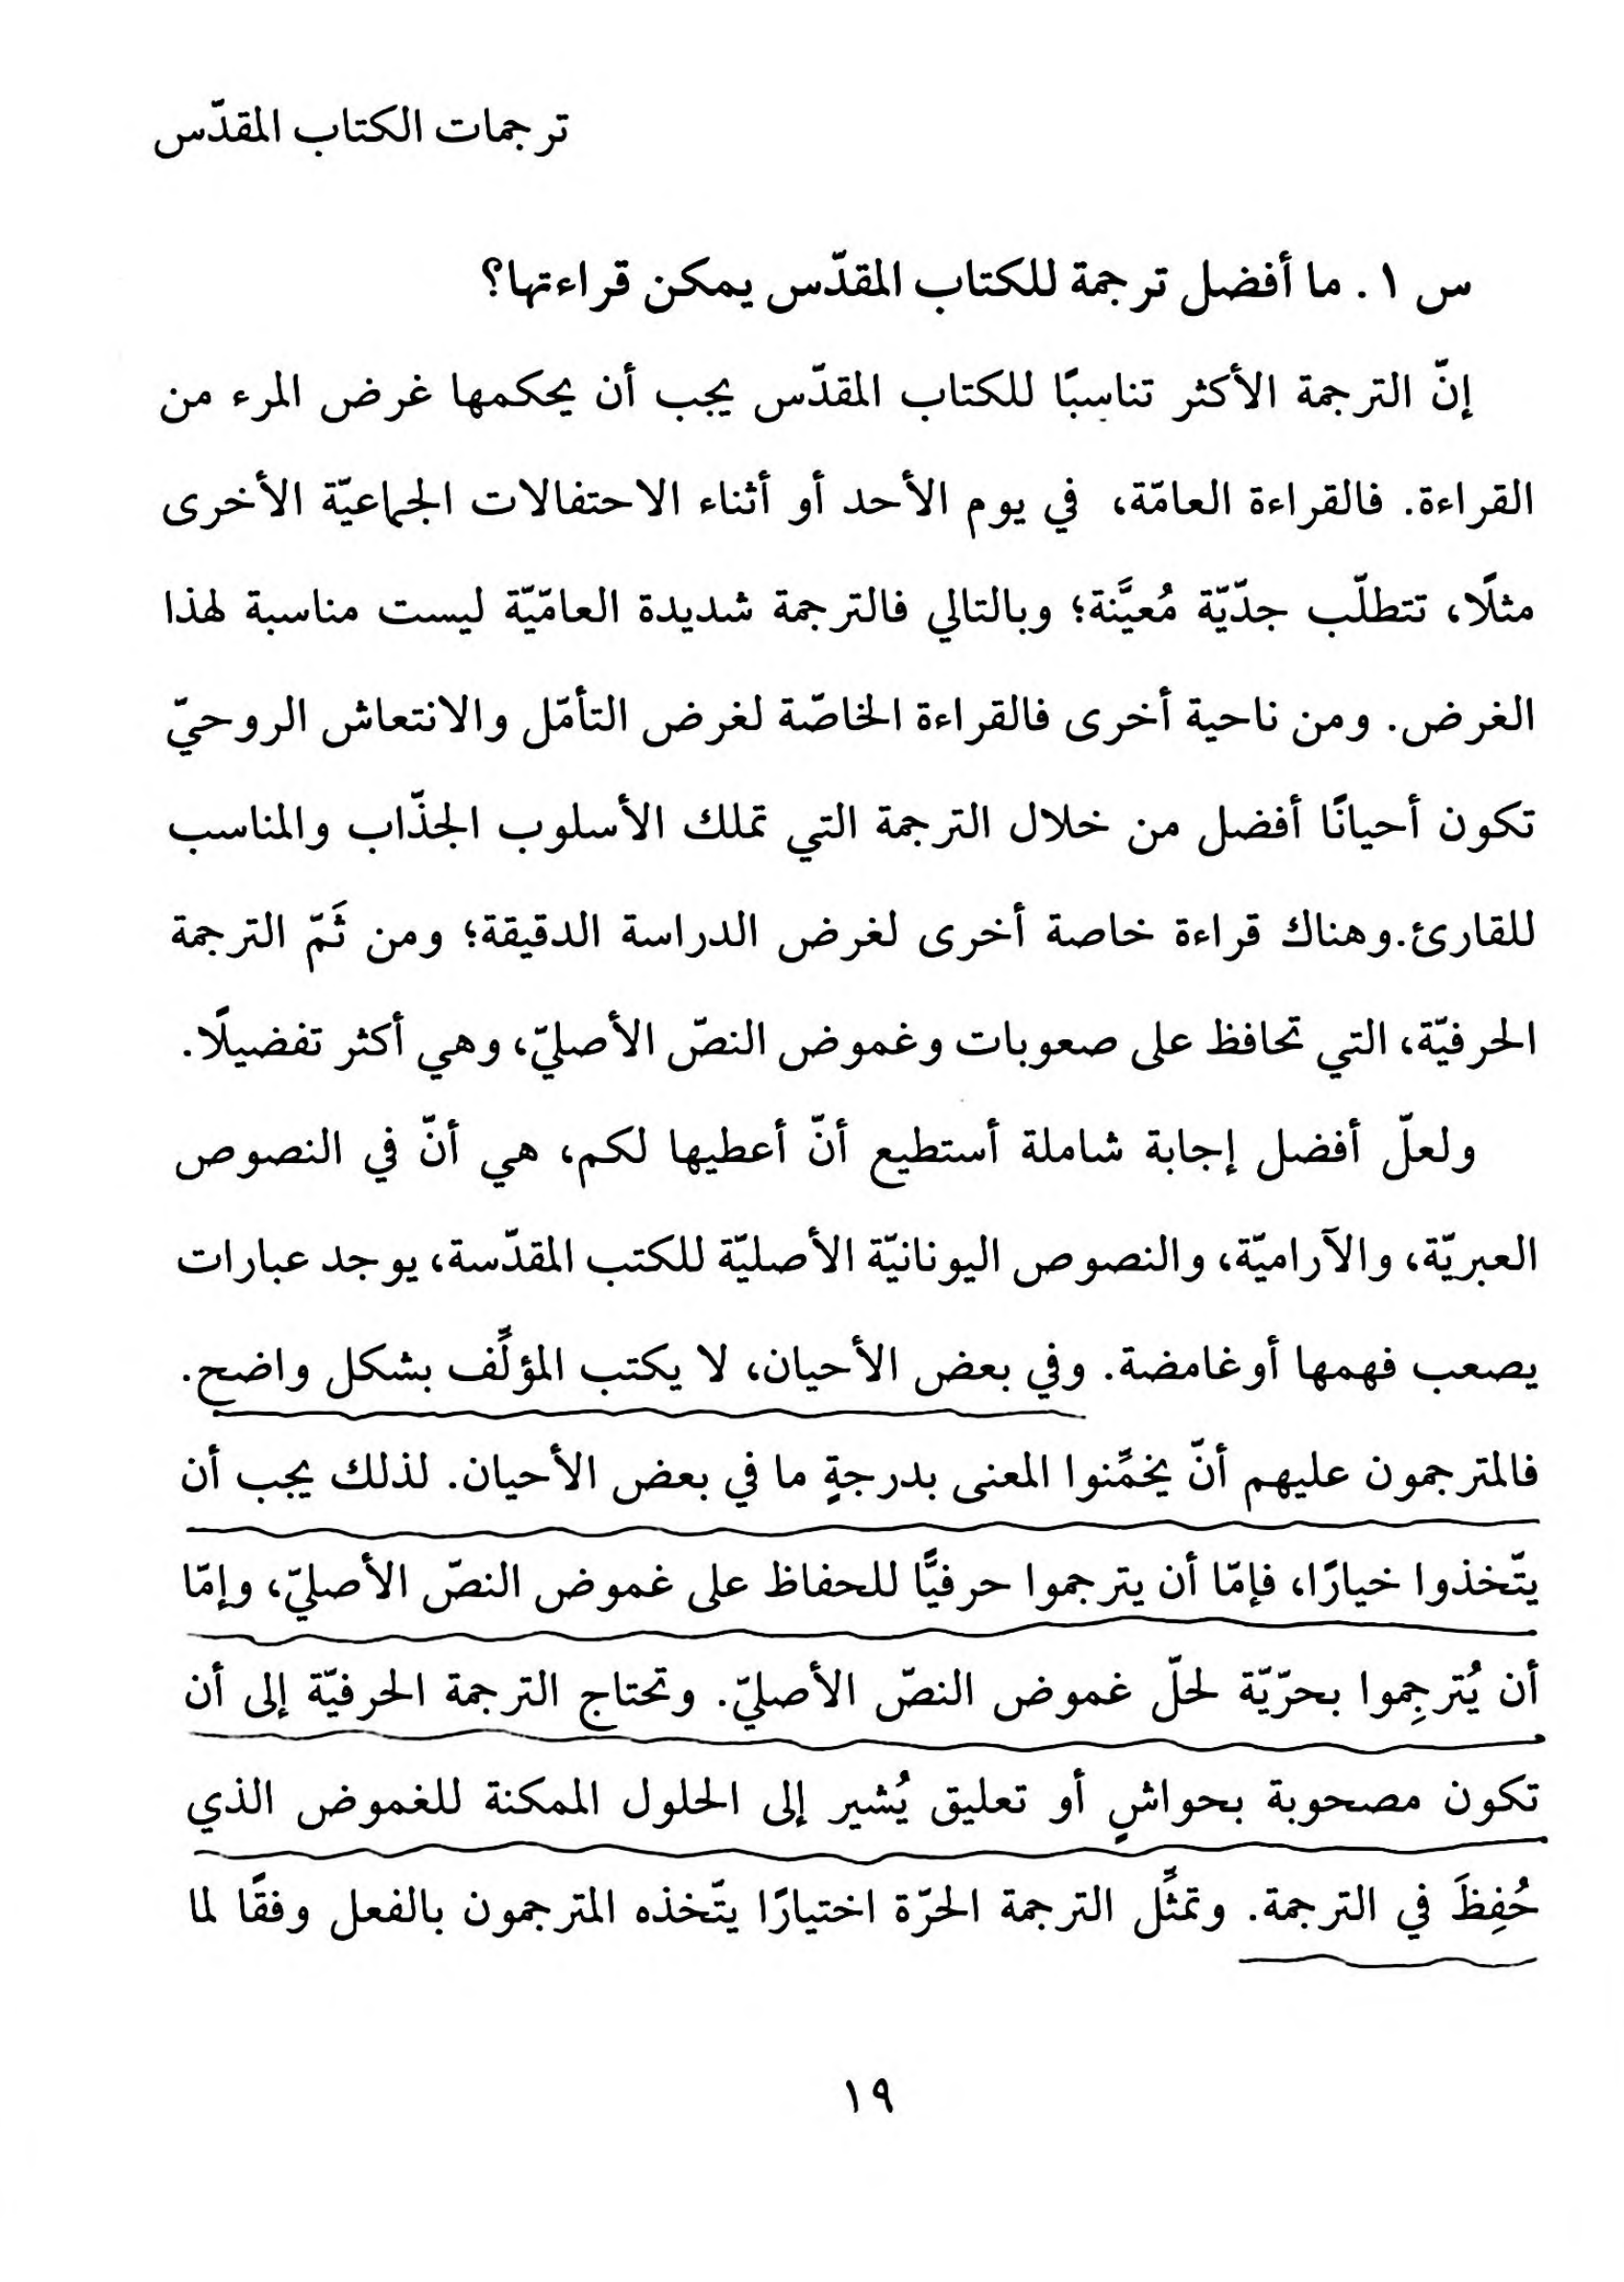 ترجمات الكتاب المقدّس
س ١. ما أفضل ترجمة للكتاب المقدّس يمكن قراءتها؟
إنّ الترجمة الأكثر تناسبًا للكتاب المقدّس يجب أن يحكمها غرض المرء من
القراءة. فالقراءة العامّة، في يوم الأحد أو أثناء الاحتفالات الجماعيّة الأخرى
مثلًا، تتطلّب جدّيّة مُعيَّنة؛ وبالتالي فالترجمة شديدة العامّيّة ليست مناسبة لهذا
الغرض. ومن ناحية أخرى فالقراءة الخاصّة لغرض التأمّل والانتعاش الروحيّ
تكون أحيانًا أفضل من خلال الترجمة التي تملك الأسلوب الجذّاب والمناسب
للقارئ.وهناك قراءة خاصة أخرى لغرض الدراسة الدقيقة؛ ومن ثَمّ الترجمة
الحرفيّة، التي تحافظ على صعوبات وغموض النصّ الأصليّ، وهي أكثر تفضيلًا.
ولعلّ أفضل إجابة شاملة أستطيع أنّ أعطيها لكم، هي أنّ في النصوص
العبريّة، والآراميّة، والنصوص اليونانيّة الأصليّة للكتب المقدّسة، يوجد عبارات
يصعب فهمها أوغامضة. وفي بعض الأحيان، لا يكتب المؤلِّف بشكل واضح.
فالمترجمون عليهم أنّ يخمِّنوا المعنى بدرجةٍ ما في بعض الأحيان. لذلك يجب أن
يتّخذوا خيارًا، فإمّا أن يترجموا حرفيًّا للحفاظ على غموض النصّ الأصليّ، وإمّا
أن يُترجِموا بحرّيّة لحلّ غموض النصّ الأصليّ. وتحتاج الترجمة الحرفيّة إلى أن
تكون مصحوبة بحواشٍ أو تعليق يُشير إلى الحلول الممكنة للغموض الذي
حُفِظَ في الترجمة. وتمثِّل الترجمة الحرّة اختيارًا يتّخذه المترجمون بالفعل وفقًا لما
١٩